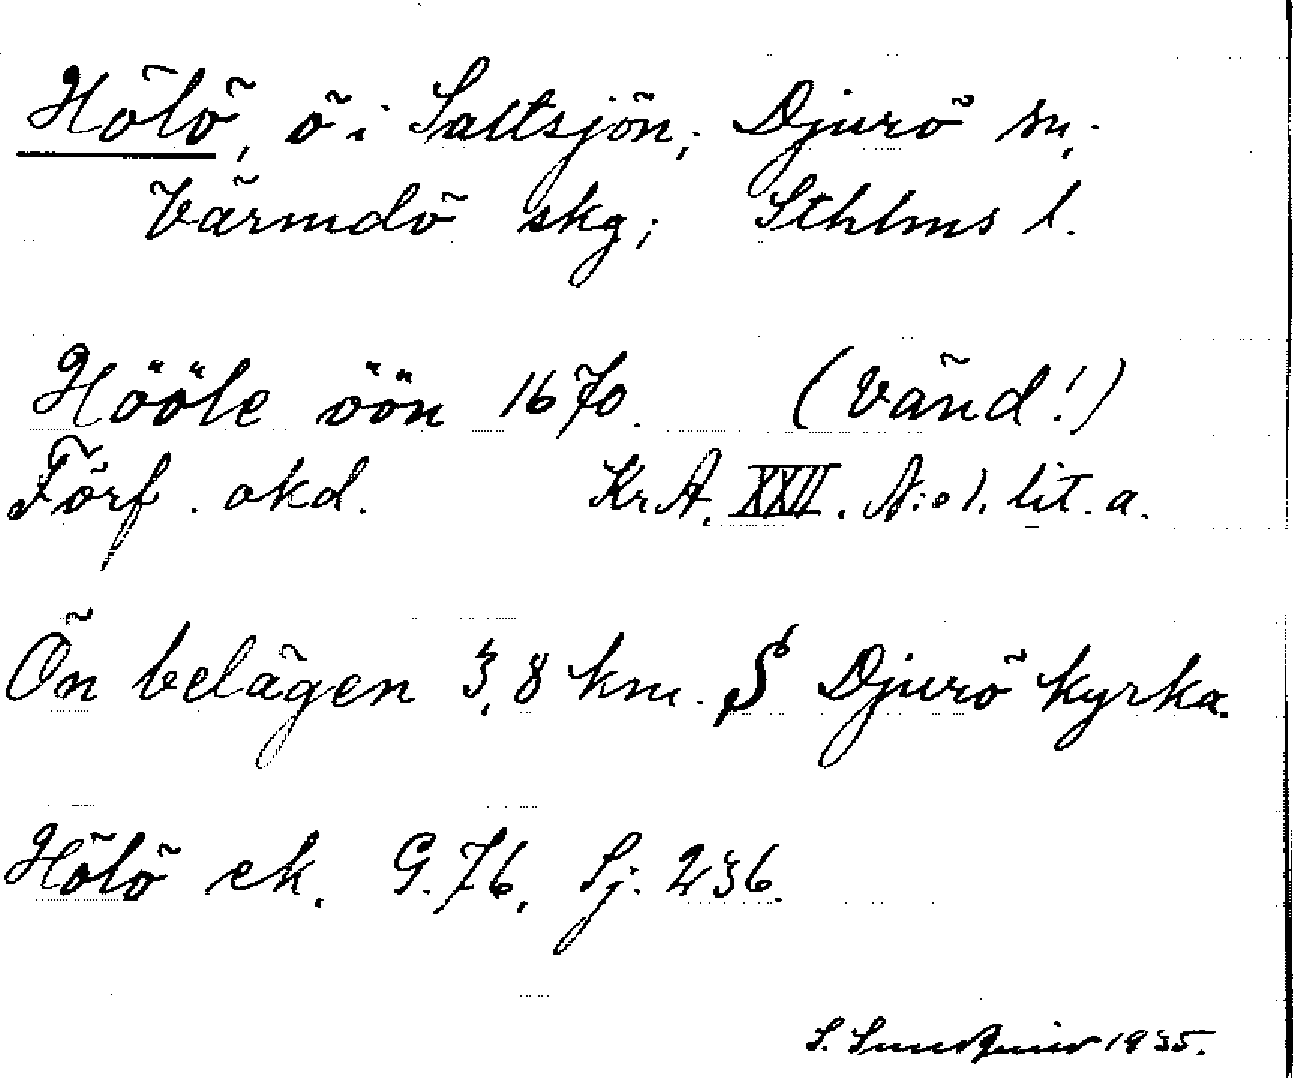 Hölö, ö i Saltsjön; Djurö sn;
Värmdö skg; Sthlms l.
Hööle öön 1670. (Vänd!)
Förf. okd. Kr A. XXII. N:o 1. lit. a.
Ön belägen 3,8 km. S Djurö kyrka.
Hölö ek. G. 76. Sj. 236.
S. 1935.